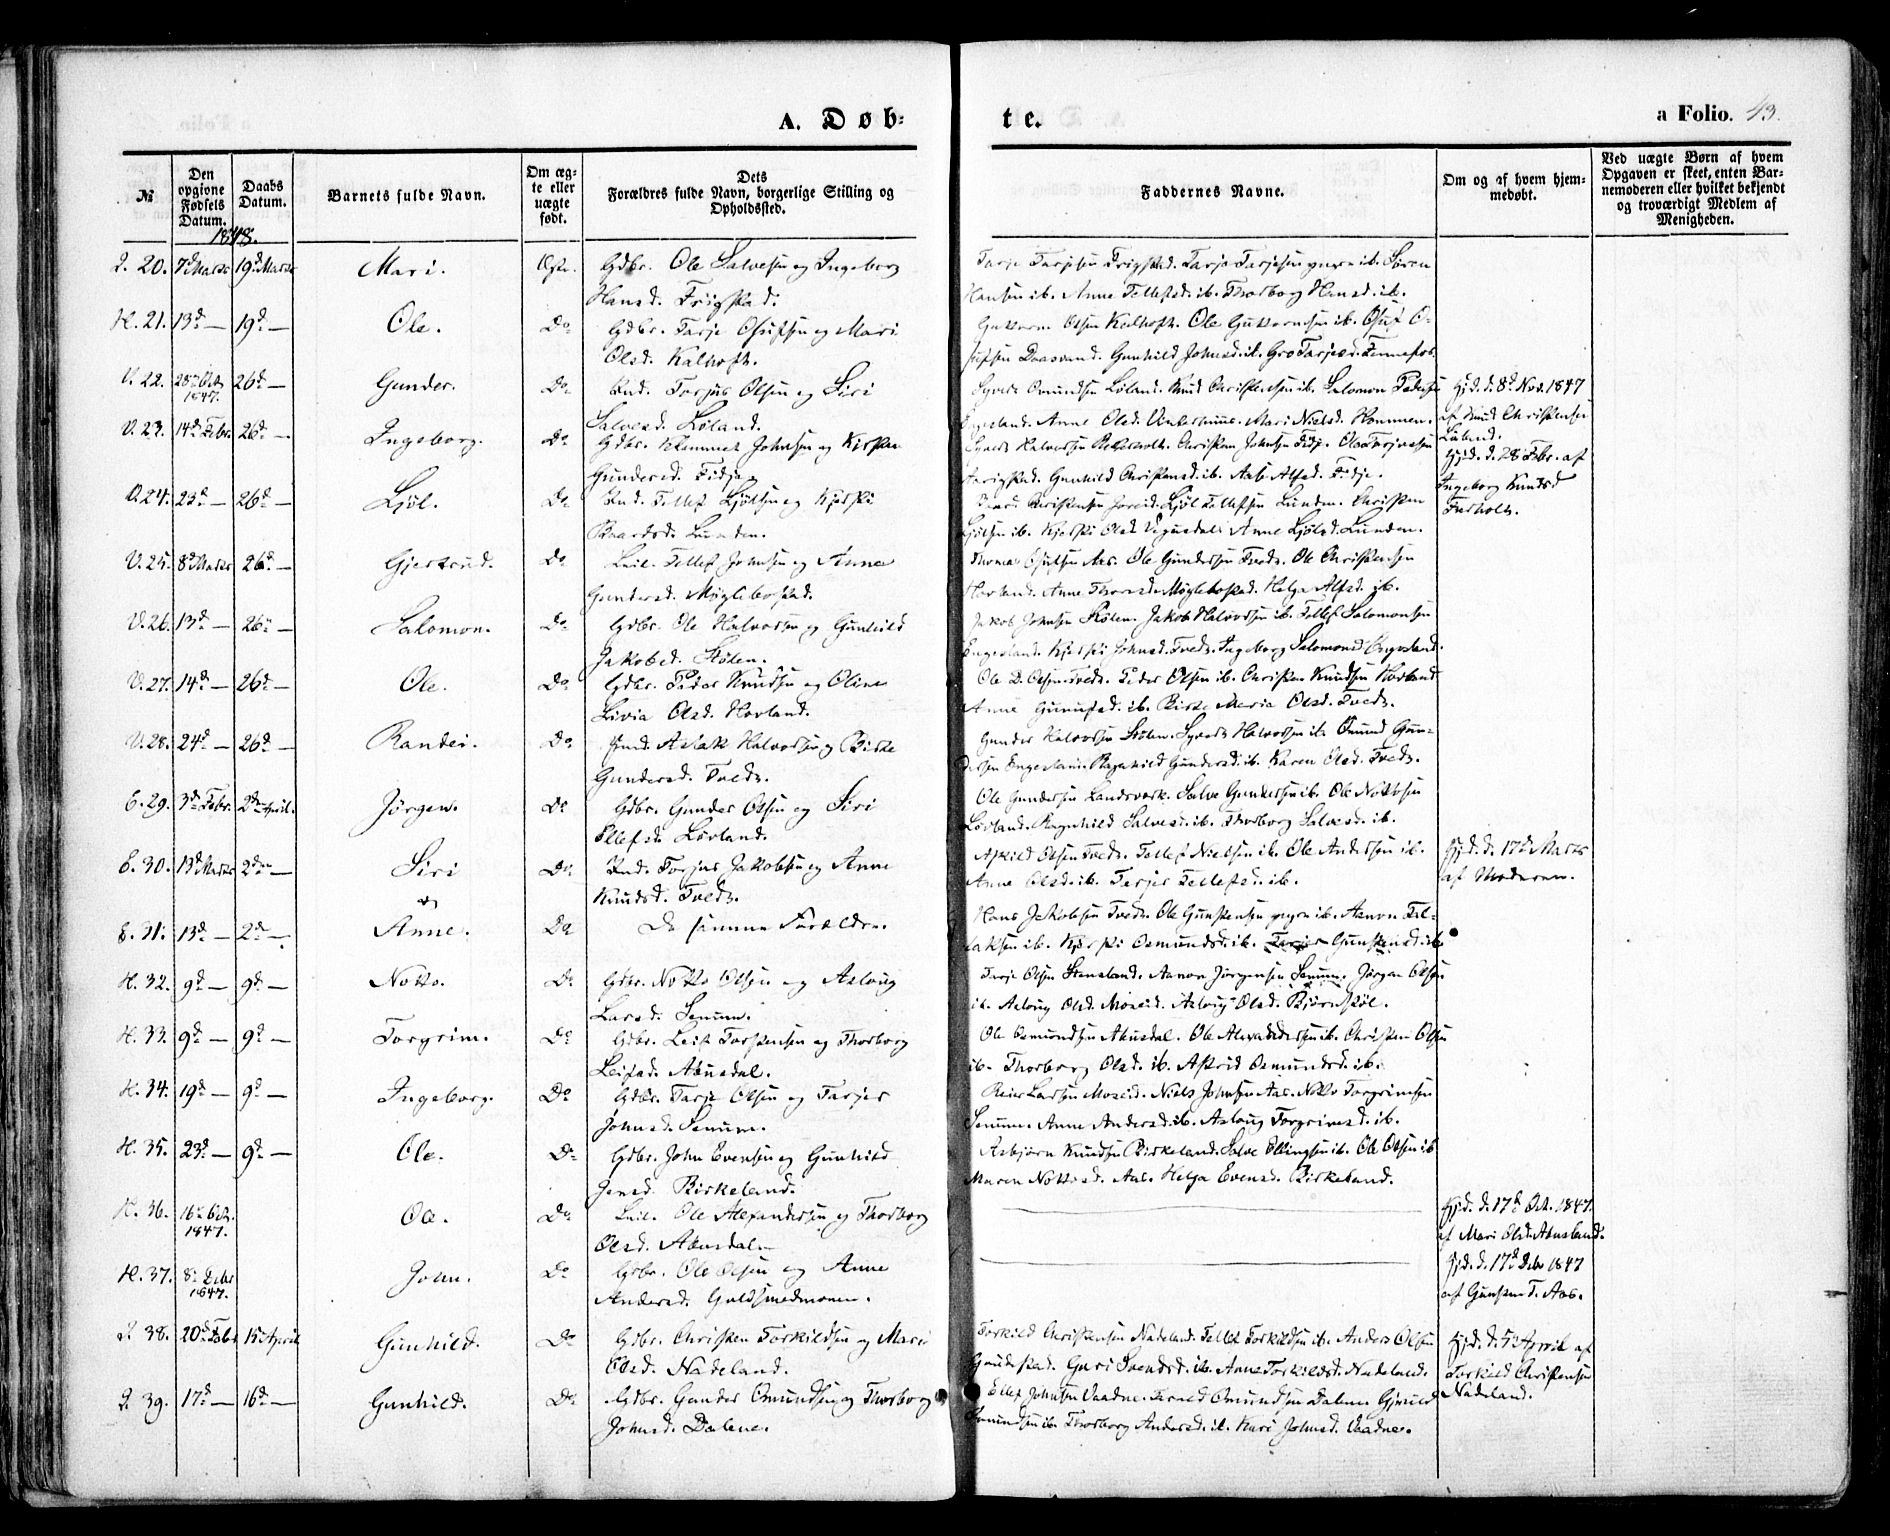 A. Døb=
te.
a Folio. 43.
№
Den opgivne Fødsels Datum.
Daabs Datum.
Barnets fulde Navn.
Om ægte eller uægte født.
Dets Forældres fulde Navn, borgerlige Stilling og Opholdssted.
Faddernes Navne.
Om og af hvem hjemmedøbt.
Ved uægte Børn af hvem Opgaven er skeet, enten Barnemoderen eller hvilket bekjendt og troværdigt Medlem af Menigheden.
1848.
20. 7d Marts 19d Marts Mari. Ægte. Gdbr. Ole Salvesen og Ingeborg
Hansd. Frigstad.
Tarje Tarjesen Frigstad. Tarje Tarjesen yngre ib. Søren
Hansen ib. Anne Tellefsd. ib. Thorborg Hansd. ib.
H. 21. 13d — 19d — Ole. Do Gdbr. Tarje Osufsen og Mari
Olsd. Kalhoft.
Guttorm Olsen Kalhoft. Ole Guttormsen ib. Osuf O-
sufsen Daasvand. Gunhild Johnsd. ib. Gro Tarjesd. Fennefos.
V. 22. 28de Oct. 1847. 26d — Gunder. Do Ind. Torjus Olsen og Siri
Salvesd. Løland.
Syvert Omundsen Løland. Knud Christensen ib. Salomon Pedersen
Engesland. Anne Olsd. Mari Nielsd. Hommen.
Hjd. d. 8d Nov. 1847
af Knud Christensen
Løland.
V. 23. 14d Febr. 26d — Ingeborg. Do Gdbr. Klemmet Johnsen og Kirsten
Gundersd. Fidje.
Syvert Halvorsen Christen Johnsen Fidje. Ole Torjussen
Gunhild Christensd. ib. Aase Alfsd. Fidje.
Hjd. d. 28 Febr. af
Ingeborg Knudsd
O. 24. 23d — 26d — Ljøl. Do Ind. Tellef Ljølsen og Kjersti
Baardsd. Lunden.
Christensen Ljøl Tellefsen Lunden. Christen
Ljølsen ib. Kjersti Olsd Vegusdal. Anne Ljølsd. Lunden.
V. 25. 8d Marts 26d — Gjertrud. Do Leil. Tellef Johnsen og Anne
Gundersd. Møglebostad.
Thomas Osufsen Aas. Ole Gundersen Tvede. Ole Christensen
Hovland. Anne Møglebostad. Helga Alfsd. ib.
V. 26. 13d — 26d — Salomon. Do Gdbr. Ole Halvorsen og Gunhild
Jakobsd. Stølen.
Jakob Johnsen Stølen. Jakob Halvorsen ib. Tellef Salomonsen
Engesland. Kjersti Johnsd. Tvede. Ingeborg Salomonsd Engesland.
V. 27. 14d — 26d — Ole. Do Gdbr. Peder Knudsen og Oline
Livia Olsd. Hovland.
Ole D. Olsen Tvede. Peder Olsen ib. Christen Knudsen Hovland
Anne ib. Birte Maria Olsd. Tvede.
V. 28. 24d — 26d — Randei. Do Ind. Aslak Halvorsen og Birte
Gundersd. Tvede.
Gunder Halvorsen Stølen. Syvert Halvorsen ib. Omund Gun-
dersen Engesland. Ragnhild Gundersd. ib. Karen Olsd. Tvede.
E. 29. 3d Febr. 2den April. Jørgen. Do Gdbr. Gunder Olsen og Siri
Ellefsd. Løvland.
Ole Gundersen Landsverk. Salve Gundersen ib. Ole Nottosen
Løvland. Ragnhild Salvesd. ib. Thorborg Salvesd. ib.
E. 30. 13d Marts 2den — Siri Do Ind. Torjus Jakobsen og Anne
Knudsd. Tvede.
Askild Olsen Tvede. Tellef Nielsen ib. Ole Andersen ib.
Anne Olsd. ib. Torjer Tellefsd. ib.
Hjd. d. 17d Marts
af Moderen.
og
E. 31. 13d — 2d — Anne. Do De samme Forældre.
Hans Jakobsen Tvede. Ole Gunstensen yngre ib. Aanon Tel-
laksen ib. Kjersti Osmundsd. ib. Gunstensd. ib.
H. 32. 9d — 9d — Notto. Do Gdbr. Notto Olsen og Aslaug
Larsd. Senum.
Tarje Olsen Stensland. Aanon Jørgensen Senum. Jørgen Olsen
ib. Aslaug Olsd. Moseid. Aslaug Olsd. Bjørnstøl.
H. 33. 9d — 9d — Torgrim. Do Gdbr. Leif Torstensen og Thorborg
Leifsd. Abusdal.
Ole Osmundsen Abusdal. Ole Alexandersen ib. Christen Olsen
ib. Thorborg Olsd. ib. Astrid Osmundsd. ib.
H. 34. 19d — 9d — Ingeborg. Do Gdbr. Tarje Olsen og Tarjer
Johnsd. Senum.
Reier Larsen Moseid. Niels Johnsen Aas. Notto Torgrimsen
Senum. Anne Andersd. ib. Aslaug Torgrimsd. ib.
H. 35. 23d — 9d — Ole. Do Gdbr. John Evensen og Gunhild
Jensd. Birkeland.
Asbjørn Knudsen Birkeland. Salve Ellingsen ib. Ole Olsen ib
Maren Nottosd. Aas. Helga Evensd. Birkeland.
H. 36. 16de Oct. 1847. Ole. Do Leil. Ole Alexandersen og Thorborg
Olsd. Abusdal.
Hjd. d. 17d Oct. 1847.
af Mari Olsd. Abusland.
H. 37. 8de Debr 1847. John. Do Gdbr. Ole Olsen og Anne
Andersd. Guldsmedmoen.
Hjd. d. 17d Debr 1847
af Gunsten T. Aas.
38. 20d Febr 15d April Gunhild. Do Gdbr. Christen Torkildsen og Mari
Olsd. Nadeland.
Torkild Christensen Nadeland. Tellef Torkildsen ib. Anders Olsen
Guri Svendsd. ib. Anne Torkildsd. Nadeland.
Hjd. d. 5d April af
Torkild Christensen
Nadeland.
39. 17d — 16d — Gunhild. Do Gdbr. Gunder Omundsen og Thorborg
Johnsd. Dalene.
Ellef Johnsen Vaadne. Omundsen Dalene
Omundsen ib. Thorborg Andersd. ib. Kari Johnsd. Vaadne.